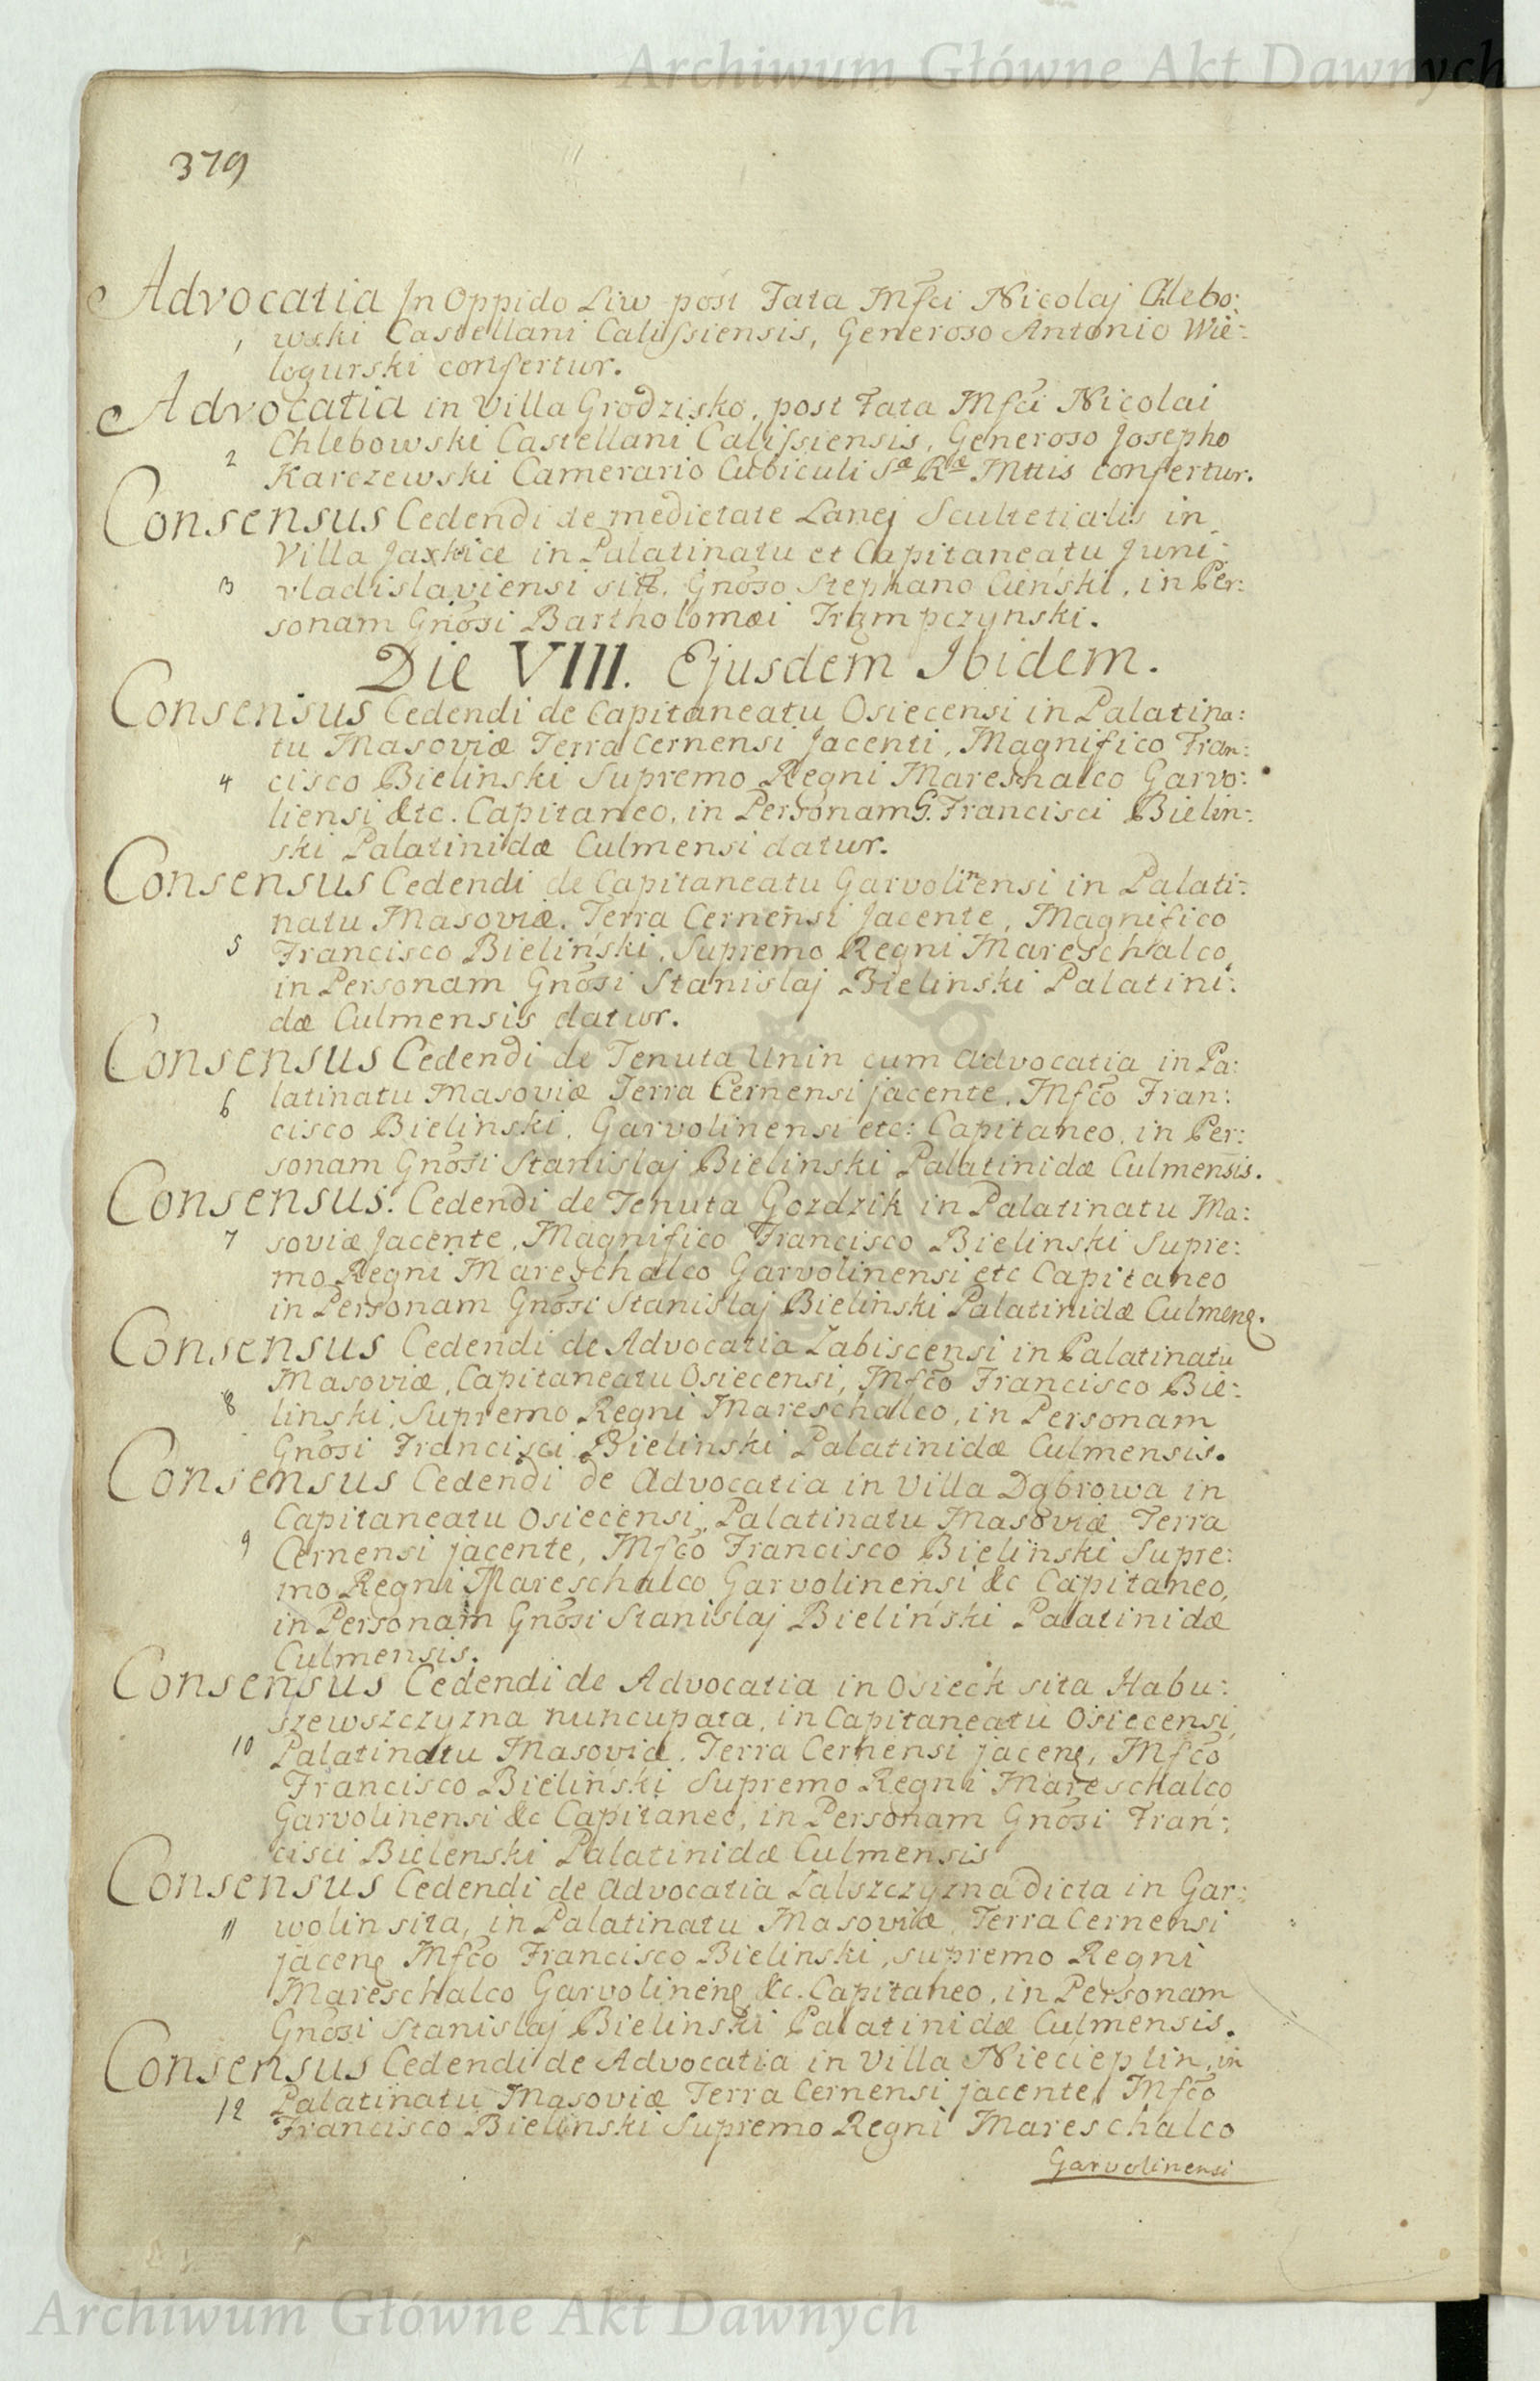 Archiwum Główne Akt Dawnych
379
Advocatia In Oppido Liw post Fata Mfci Nicolaj Chlebo:
1 wski Castellani Calissiensis, Generoso Antonio Wie:
logurski confertur.
Advocatia in Villa Grodzisko, post Fata Mfci Nicolai
Chlebowski Castellani Calissiensis, Generoso Josepho
2 Karczewski Camerario Cubiculi Sæ Ræ Mttis confertur.
Consensus Cedendi de medietate Lanej Scultetialis in
Villa Jaxkice in Palatinatu et Capitaneatu Juni:
3 vladislaviensi Gnoso Stephano Cieński, in Per:
sonam Gnosi Bartholomæi Trąmpczynski.
Die VIII. Ejusdem Ibidem.
Consensus Cedendi de Capitaneatu Osiecensi in Palatina:
tu Masoviæ Terra Cernensi Jacenti, Magnifico Fran:
4 cisco Bielinski Supremo Regni Mareschalco Garvo:
liensi &tc. Capitaneo, in Personam G. Francisci Bielin:
ski Palatinidæ Culmensi datur.
Consensus Cedendi de Capitaneatu Garvolinensi in Palati:
natu Masoviæ, Terra Cernensi Jacente, Magnifico
5 Francisco Bieliński, Supremo Regni Mareschalco,
in Personam Gnosi Stanislaj Bielinski Palatini:
dæ Culmensis datur.
Consensus Cedendi de Tenuta Unin cum Advocatia in Pa:
6 latinatu Masoviæ Terra Cernensi jacente, Mfco Fran:
cisco Bielinski, Garvolinensi etc: Capitaneo, in Per:
sonam Gnosi Stanislaj Bielinski Palatinidæ Culmensis.
Consensus. Cedendi de Tenuta Gozdzik in Palatinatu Ma:
7 soviæ Jacente, Magnifico Francisco Bielinski Supre:
mo Regni Mareschalco Garvolinensi etc Capitaneo
in Personam Gnosi Stanislaj Bielinski Palatinidæ Culmens.
Consensus Cedendi de Advocatia Zabiscensi in Palatinatu
Masoviæ, Capitaneatu Osiecensi, Mfco Francisco Bie:
8 linski, Supremo Regni Mareschalco, in Personam
Gnosi Francisci Bielinski Palatinidæ Culmensis.
Consensus Cedendi de Advocatia in Villa Dąbrowa in
Capitaneatu Osiecensi, Palatinatu Masoviæ Terra
9 Cernensi jacente, Mfco Francisco Bielinski Supre:
mo Regni Mareschalco Garvolinensi &c Capitaneo,
in Personam Gnosi Stanislaj Bieliński Palatinidæ
Culmensis.
Consensus Cedendi de Advocatia in Osieck sita Habu:
szewszczyzna nuncupata, in Capitaneatu Osiecensi,
10 Palatinatu Masoviæ, Terra Cernensi jacen, Mfco
Francisco Bieliński Supremo Regni Mareschalco
Garvolinensi &c Capitaneo, in Personam Gnosi Fran:
cisci Bielenski Palatinidæ Culmensis
Consensus Cedendi de Advocatia Lalszczyzna dicta in Gar:
11 wolin sita, in Palatinatu Masoviæ, Terra Cernensi
jacen Mfco Francisco Bielinski, supremo Regni
Mareschalco Garvolinen &c. Capitaneo, in Personam
Gnosi Stanislaj Bielinski Palatinidæ Culmensis.
Consensus Cedendi de Advocatia in Villa Niecieplin, in
12 Palatinatu Masoviæ Terra Cernensi jacente, Mfco
Francisco Bielinski Supremo Regni Mareschalco
Garvolinensi
Archiwum Główne Akt Dawnych